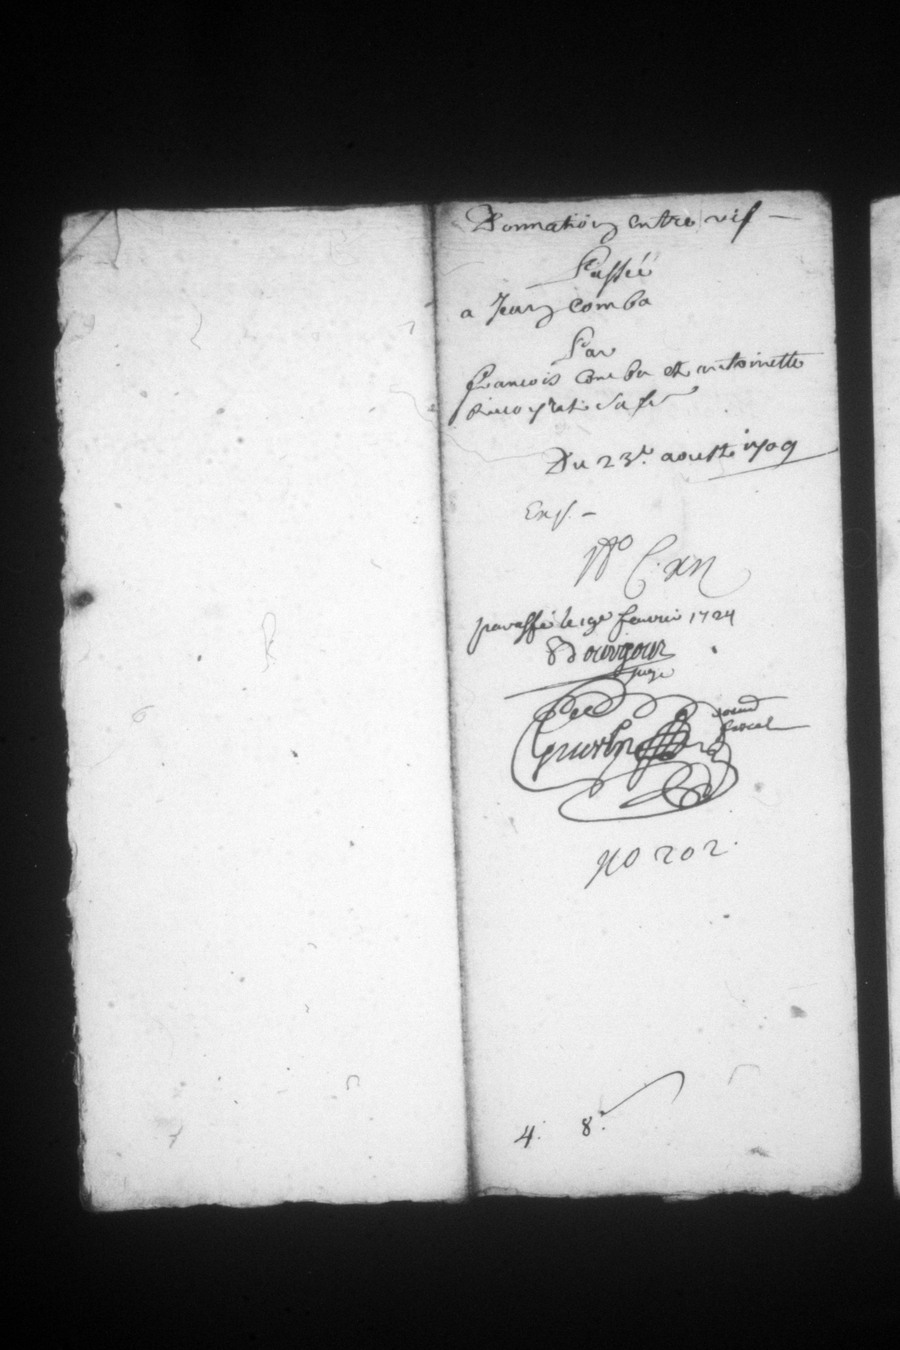 Donnation entre vif
Passée
a Jean comba
Par
francois Comba et antoinette
sa fe
Du 23e. aoust 1709
Exp.
No C. xn
paraffé le 19e feuvrie 1724
Bourgoin
juge
fiscal
No 202.
4. 8.